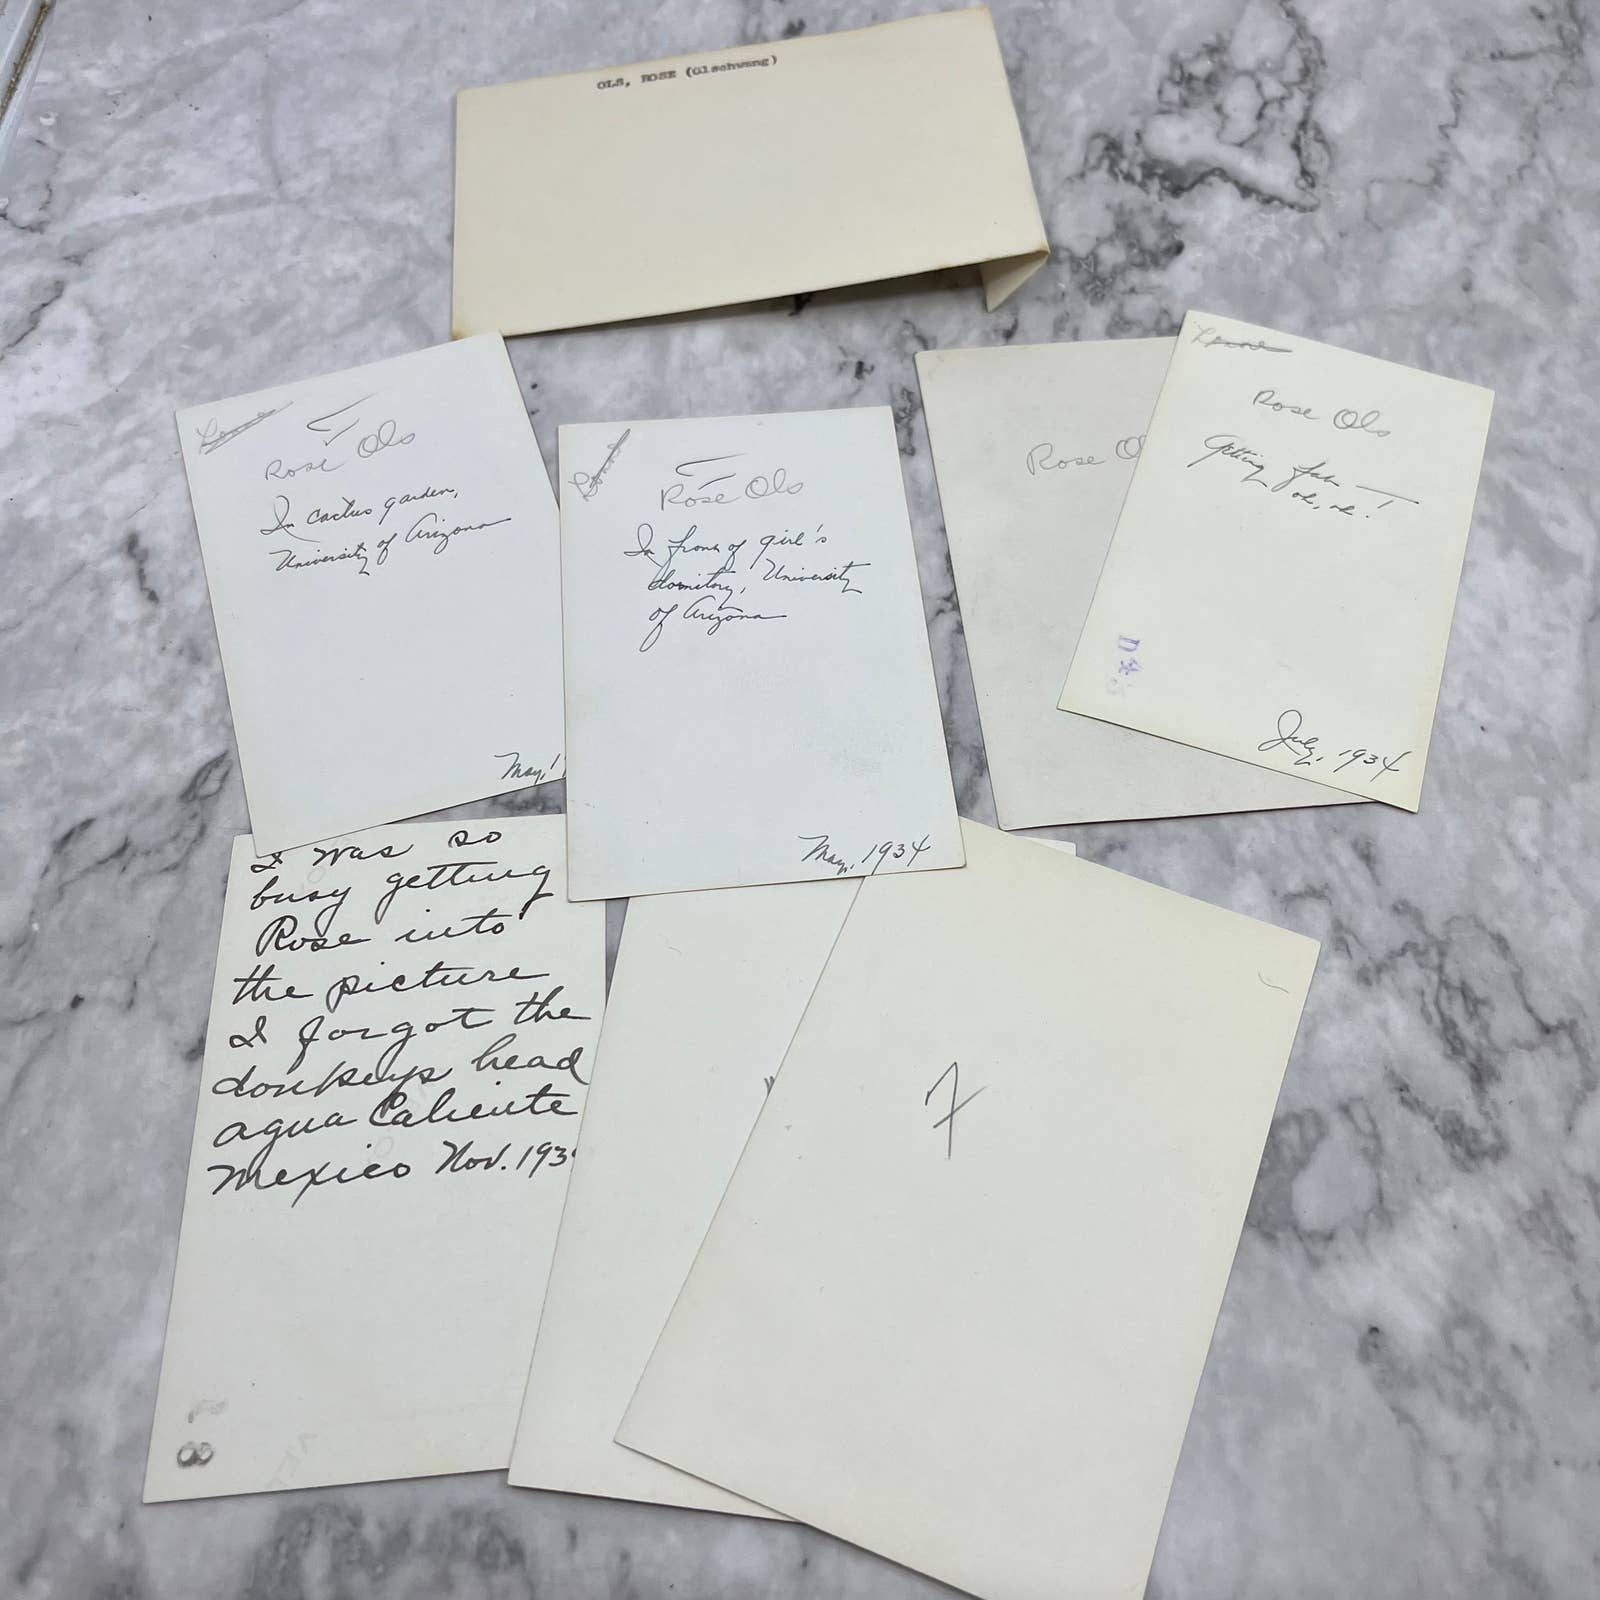 OLS, ROSE (Glschwang)
Rose Ols
In cactus garden,
University of Arizona
May, 1
Rose Ols
In front of girl's
dormitory, University
of Arizona
May, 1934
Rose Ol
Rose Ols
Getting fat —
oh, oh!
July, 1934
I was so
busy getting
Rose into
the picture
I forgot the
donkeys head
agua Caliente
Mexico Nov. 193
7